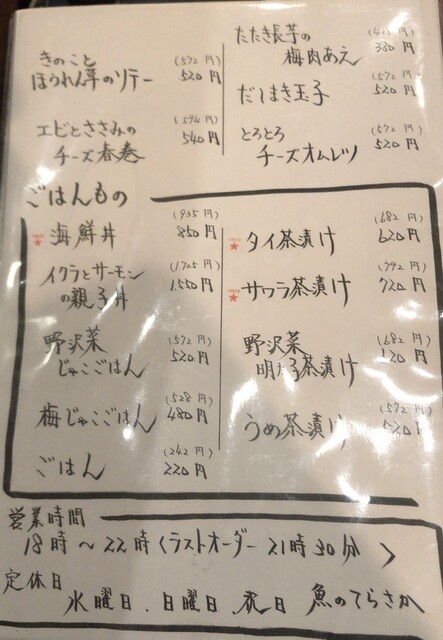 きのこと (572円)
ほうれん草のソテー 520円
エビとささみの (594円)
チーズ春巻 540円
たたき長芋の
梅肉あえ 380円
だしまき玉子 (572円) 520円
とろとろ (572円)
チーズオムレツ 520円
ごはんもの
海鮮丼 (935円) 850円
イクラとサーモン (1705円)
の親子丼 1,550円
野沢菜 (572円)
じゃこごはん 520円
梅じゃこごはん (528円) 480円
ごはん (242円) 220円
タイ茶漬け (682円) 620円
サワラ茶漬け (792円) 720円
野沢菜 (682円)
明太子茶漬け
うめ茶漬け (572円) 520円
営業時間
18時〜22時くラストオーダー 21時30分>
定休日
水曜日、日曜日、祝日 魚のてらさか